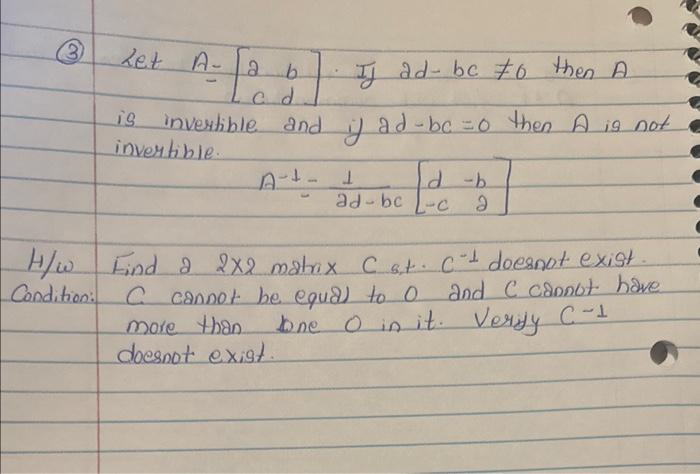 ③ Let A = [a b
c d]. If ad - bc ≠ 0 then A
is invertible and if ad - bc = 0 then A is not
invertible.
A⁻¹ = 1/(ad - bc) [d -b
-c a]
H/w Find a 2x2 matrix C s.t. C⁻¹ doesnot exist.
Condition: C cannot be equal to 0 and C cannot have
more than one 0 in it. Verify C⁻¹
doesnot exist.